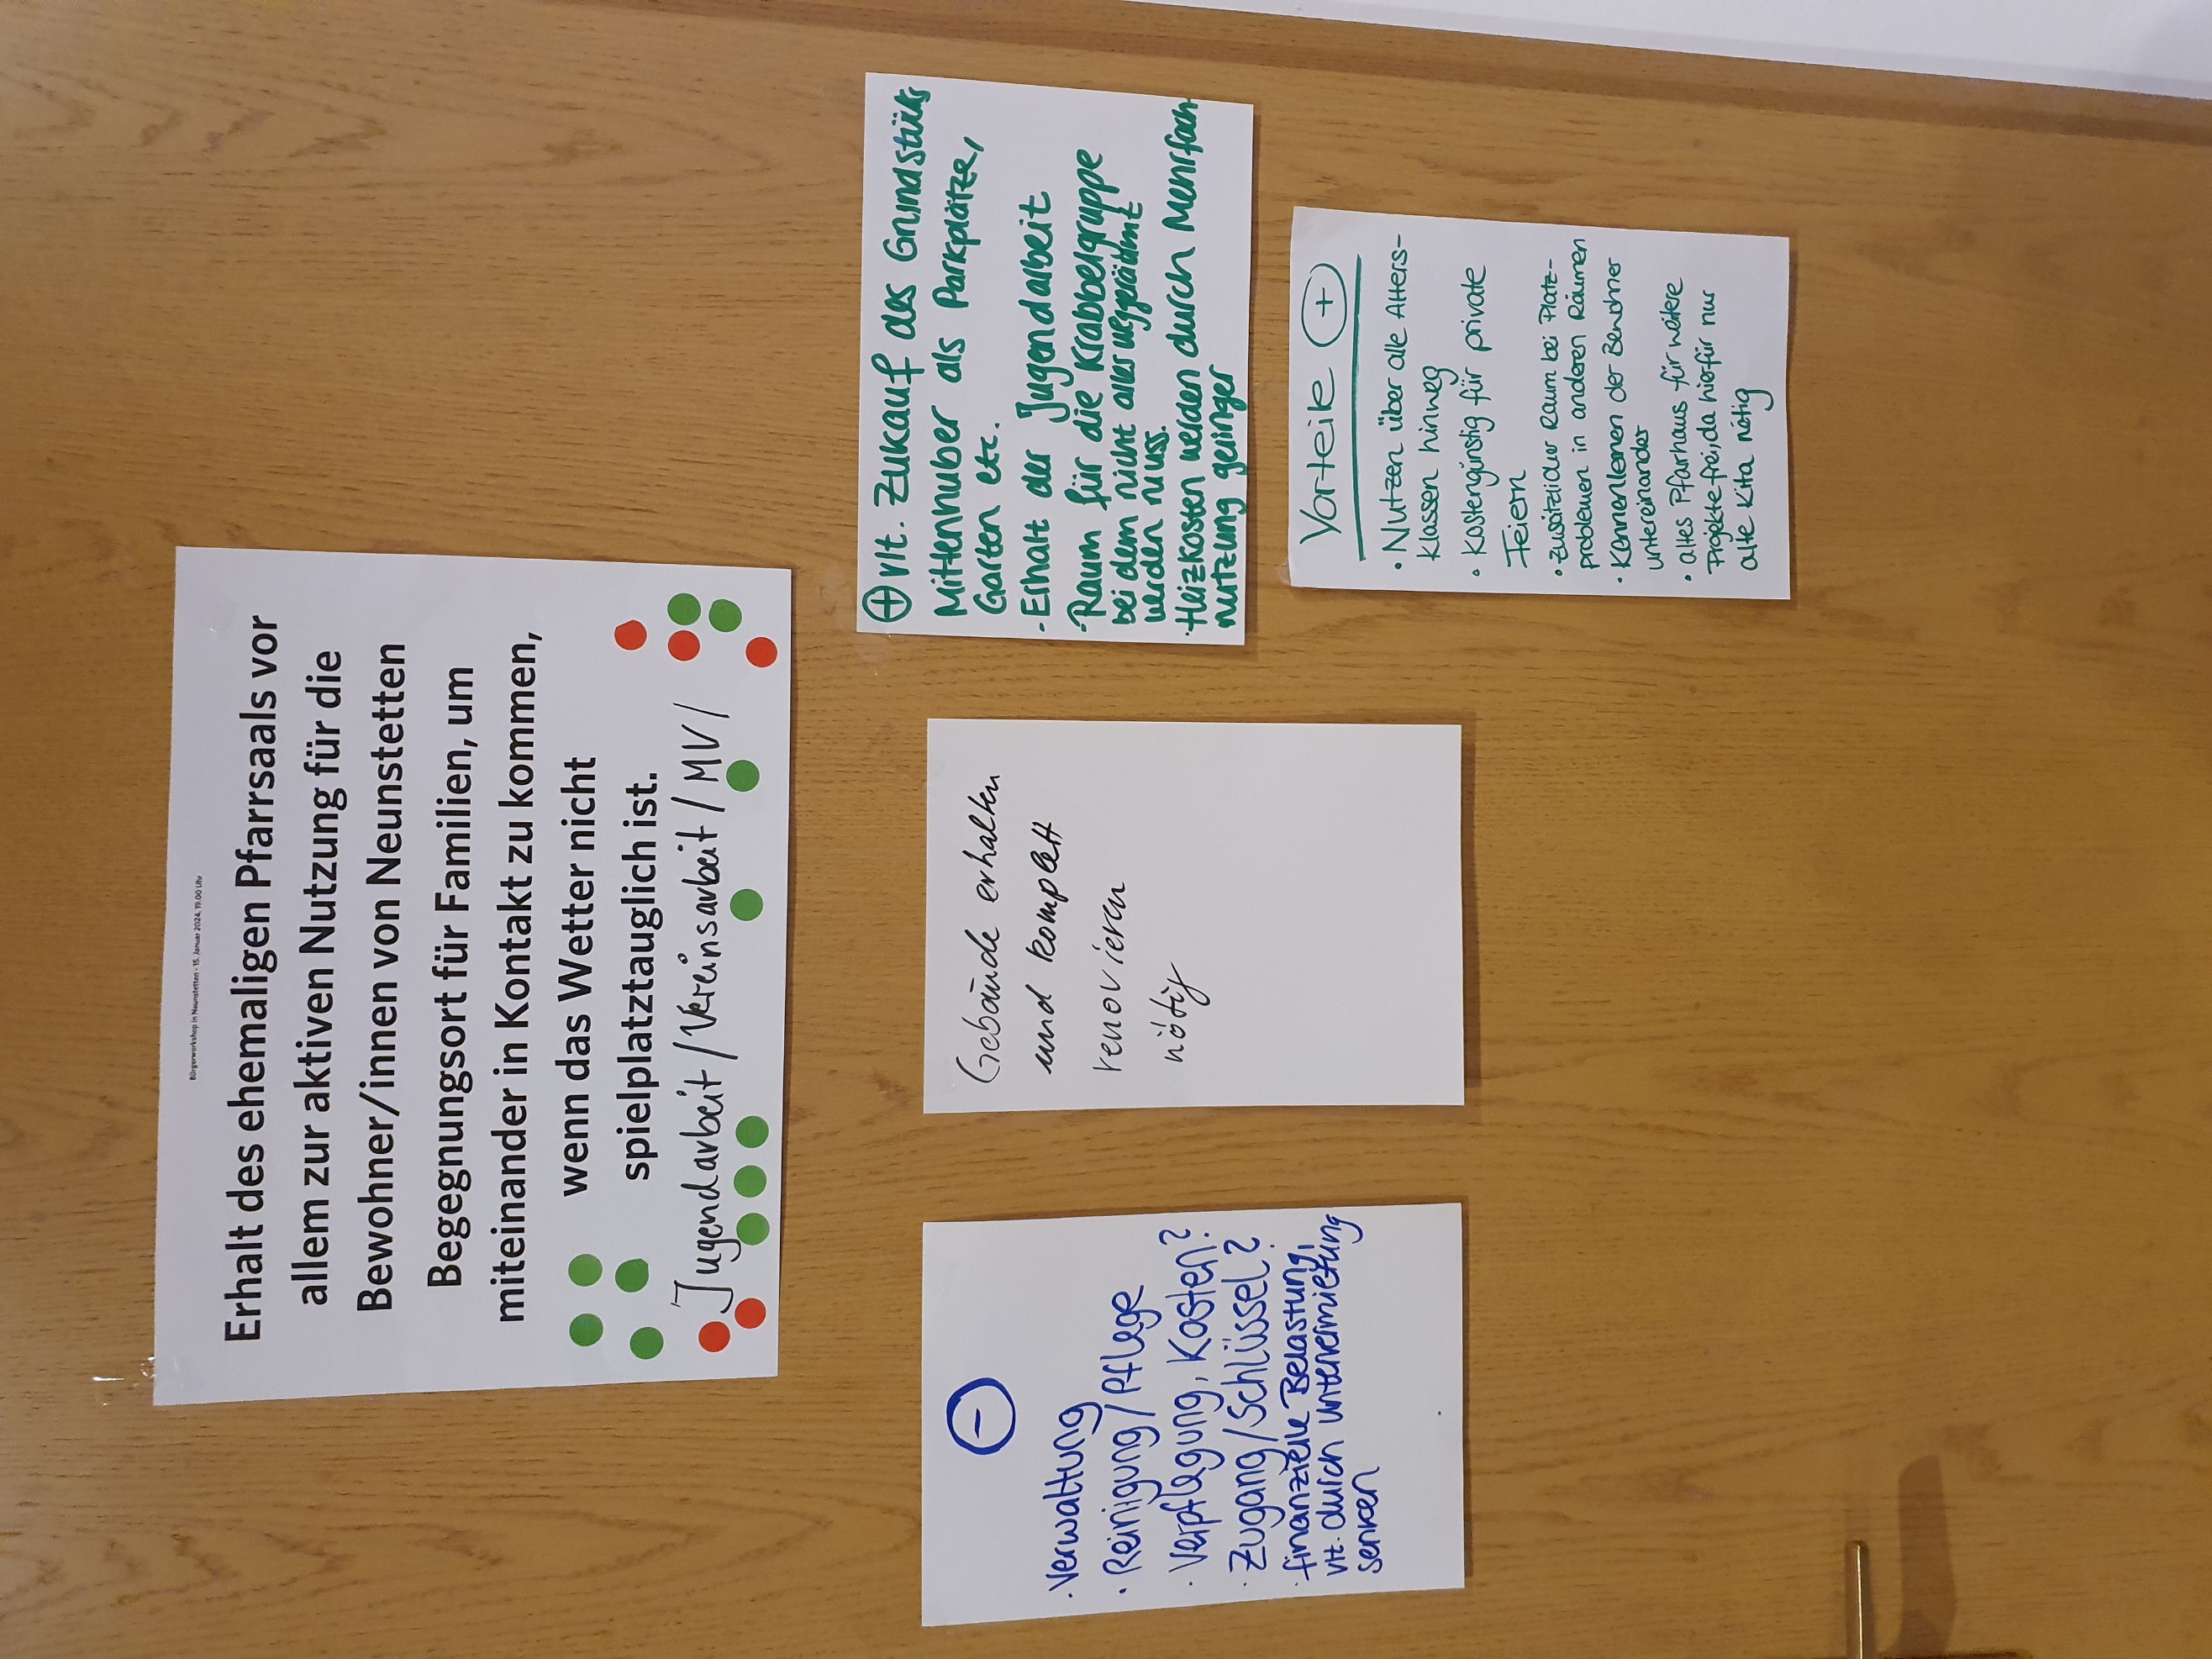 Bürgerworkshop in Neunstetten - 15. Januar 2024, 19.00 Uhr
Erhalt des ehemaligen Pfarrsaals vor
allem zur aktiven Nutzung für die
Bewohner/innen von Neunstetten
Begegnungsort für Familien, um
miteinander in Kontakt zu kommen,
wenn das Wetter nicht
spielplatztauglich ist.
Jugendarbeit / Vereinsarbeit / MV /
-
· Verwaltung
· Reinigung/Pflege
· Verpflegung, Kosten?
· Zugang/Schlüssel?
· finanzielle Belastung,
vlt. durch Untervermietung
senken
Gebäude erhalten
und komplett
renovieren
nötig
+ vlt. Zukauf des Grundstücks
Mittennhuber als Parkplätze,
Garten etc.
- Erhalt der Jugendarbeit
- Raum für die Krabbelgruppe
bei dem nicht alles weggeräumt
werden muss.
· Heizkosten werden durch Mehrfach
nutzung geringer
Vorteile +
• Nutzen über alle Alters-
klassen hinweg
• Kostengünstig für private
Feiern
• zusätzlicher Raum bei Platz-
problemen in anderen Räumen
• Kennenlernen der Bewohner
untereinander
• altes Pfarrhaus für weitere
Projekte frei, da hierfür nur
alte Kita nötig